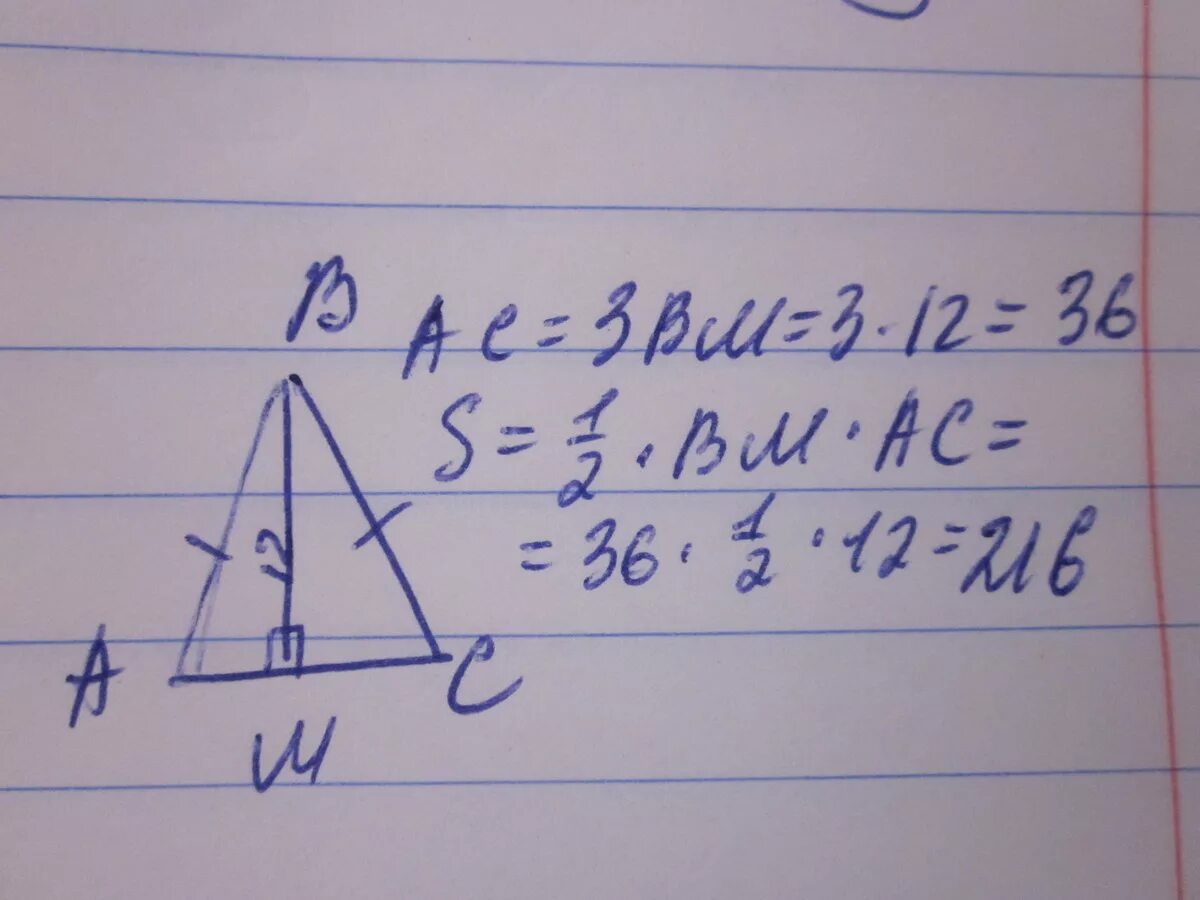 B
AC = 3BM = 3 · 12 = 36
S = 1/2 · BM · AC =
= 36 · 1/2 · 12 = 216
12
A
C
M